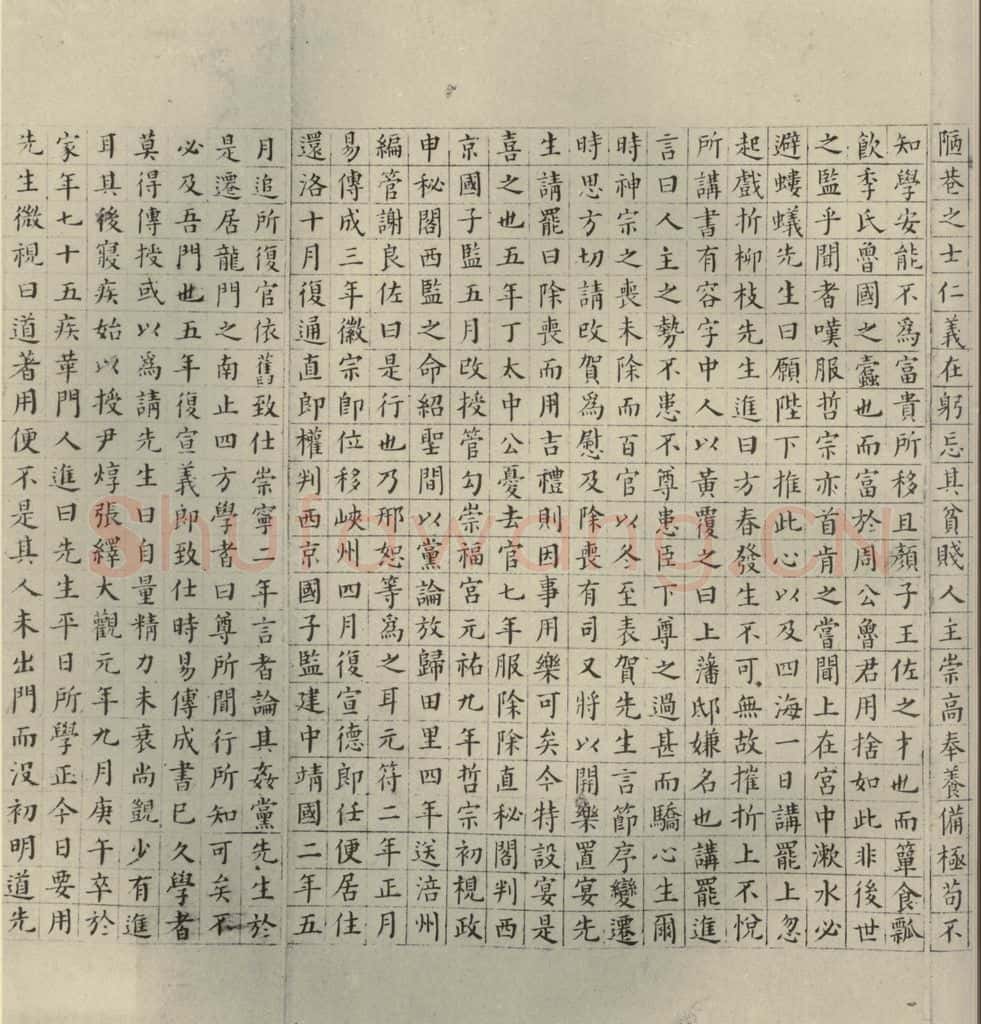 陋巷之士仁義在躬忘其貧賤人主崇高奉養備極苟不
知學安能不爲富貴所移且顏子王佐之才也而簞食瓢
飲季氏魯國之蠹也而富於周公魯君用捨如此非後世
之監乎聞者嘆服哲宗亦首肯之嘗聞上在宮中漱水必
避螻蟻先生曰願陛下推此心以及四海一日講罷上忽
起戲折柳枝先生進曰方春發生不可無故摧折上不悅
所講書有容字中人以黃覆之曰上藩邸嫌名也講罷進
言曰人主之勢不患不尊患臣下尊之過甚而驕心生爾
時神宗之喪未除而百官以冬至表賀先生言節序變遷
時思方切請改賀爲慰及除喪有司又將以開樂置宴先
生請罷曰除喪而用吉禮則因事用樂可矣今特設宴是
喜之也五年丁太中公憂去官七年服除除直秘閣判西
京國子監五月改授管勾崇福宮元祐九年哲宗初視政
申秘閣西監之命紹聖間以黨論放歸田里四年送涪州
編管謝良佐曰是行也乃邢恕等爲之耳元符二年正月
易傳成三年徽宗即位移峽州四月復宣德郎任便居住
還洛十月復通直郎權判西京國子監建中靖國二年五
月追所復官依舊致仕崇寧二年言者論其姦黨先生於
是遷居龍門之南止四方學者曰尊所聞行所知可矣不
必及吾門也五年復宣義郎致仕時易傳成書已久學者
莫得傳授或以爲請先生曰自量精力未衰尚覬少有進
耳其後寢疾始以授尹焞張繹大觀元年九月庚午卒於
家年七十五疾革門人進曰先生平日所學正今日要用
先生微視曰道著用便不是其人未出門而没初明道先
Shufawang.CN